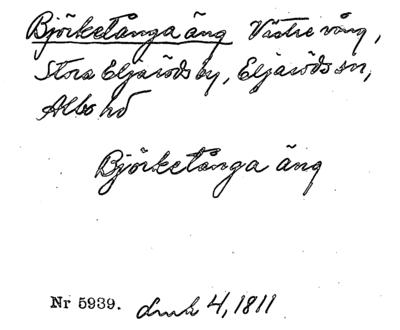 Björketånga äng Västre vång,
Stora Eljaröds by, Eljaröds sn,
Albo hd
Björketånga äng
Nr 5939. duk 4, 1811